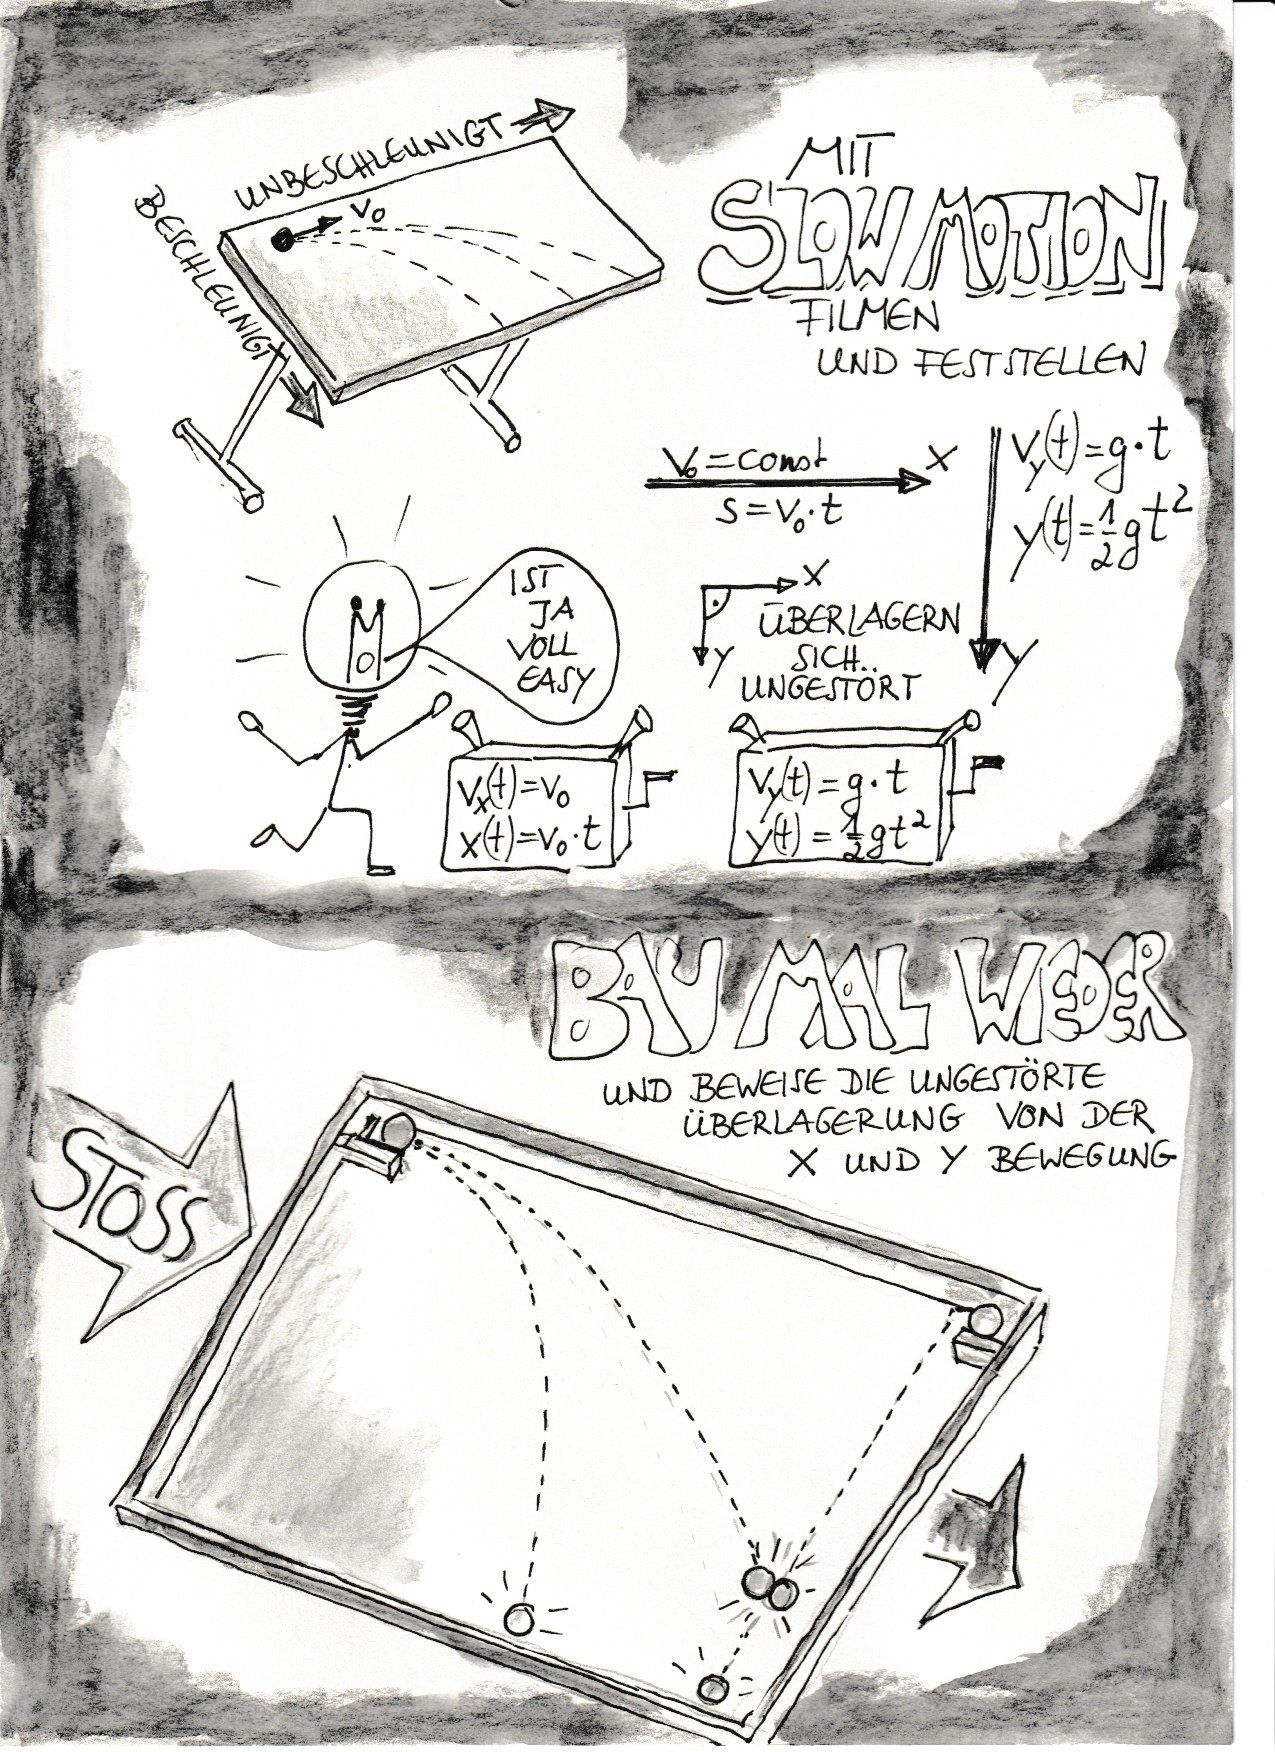 UNBESCHLEUNIGT
BESCHLEUNIGT
v₀
MIT
SLOW MOTION
FILMEN
UND FESTSTELLEN
v₀=const
x
s=v₀·t
v_y(t)=g·t
y(t)=½gt²
y
x
y
ÜBERLAGERN
SICH
UNGESTÖRT
IST
JA
VOLL
EASY
v_x(t)=v₀
x(t)=v₀·t
v_y(t)=g·t
y(t)=½gt²
BAU MAL WIEDER
UND BEWEISE DIE UNGESTÖRTE
ÜBERLAGERUNG VON DER
X UND Y BEWEGUNG
STOSS